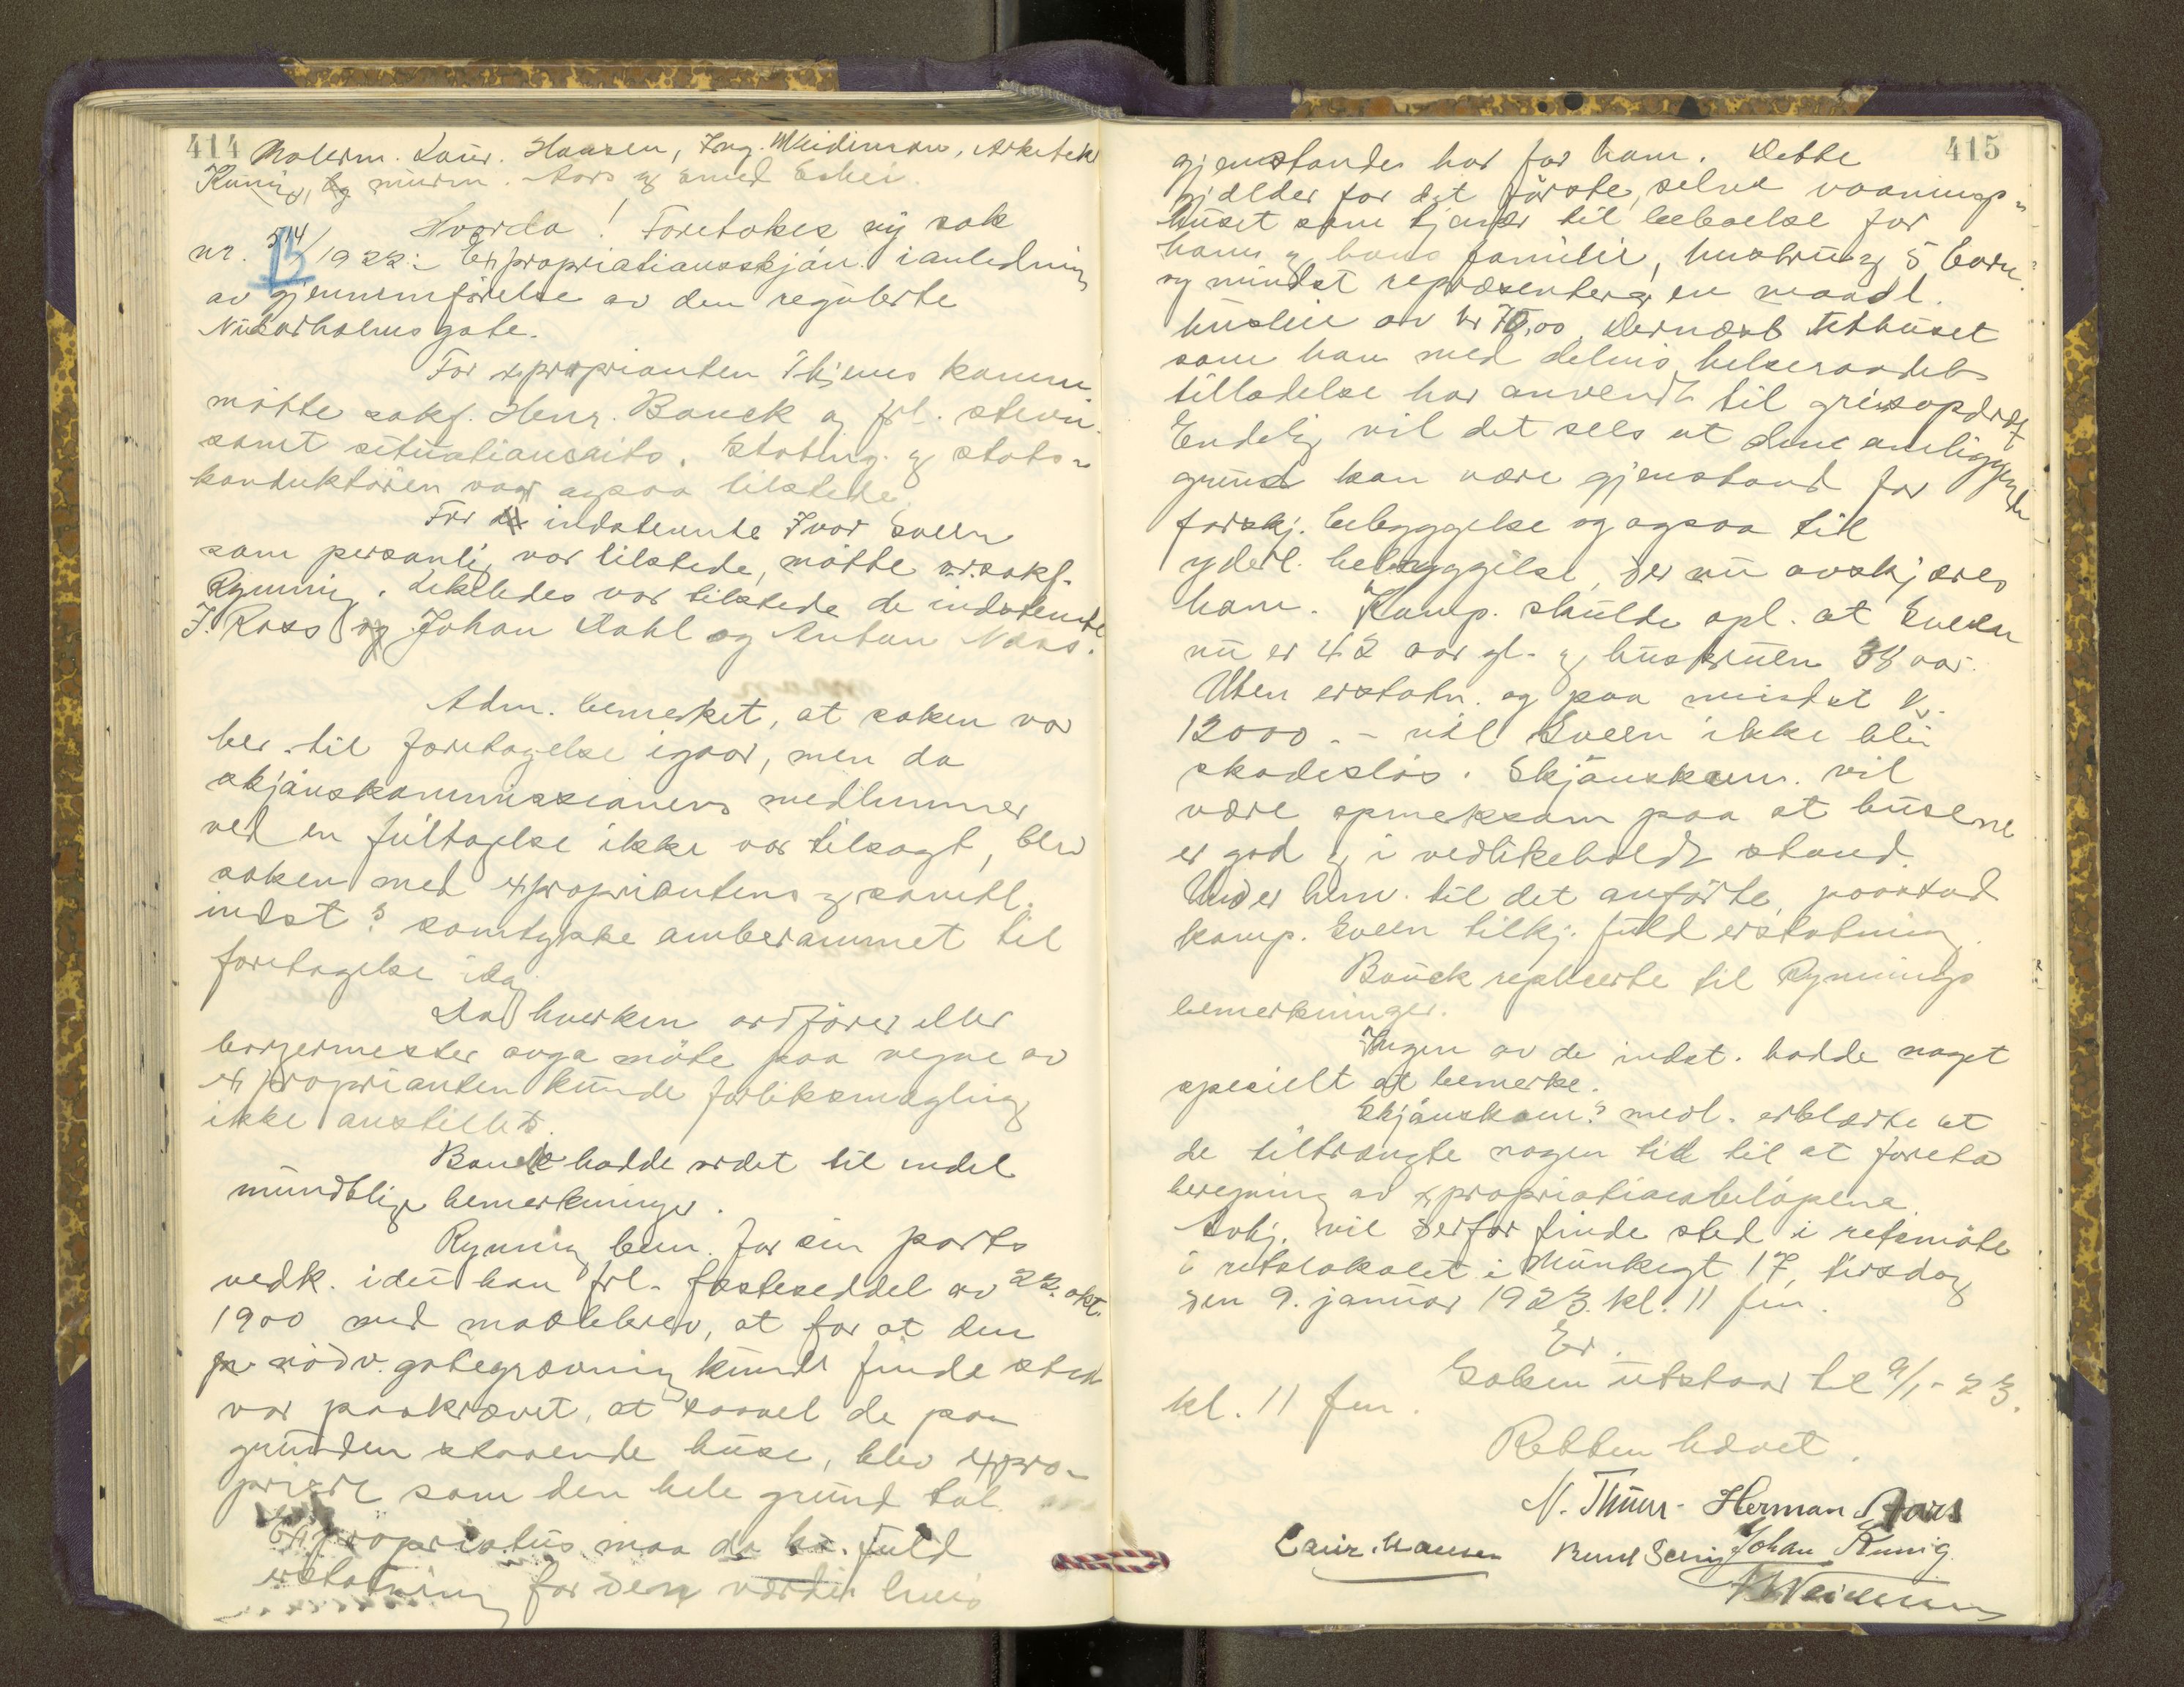 414 Malerm. Laur. Hansen, Ing. Weidiman, Arkitekt
Kunig, og murm. Aars og
Hvorda! Foretokes ny sak
nr. 514/1922: Expropriationsskjön i anledning
B
av gjennemförelse av den regulerte
Nidarholms gate.
For exproprianten Thjems komm.
mötte sakf. Henr. Bauck og frl. stevn.
samt situationsrits. Stating. og stats-
konduktören var ogsaa tilstede
For indstevnte Ivar Sveen
som personlig var tilstede, mötte o.r.sakf.
Rynning. Likeledes var tilstede de indstevnte
J. Ross og Johan Dahl og Anton Naas.
Adm. bemerket, at saken var
ber. til foretagelse igaar, men da
skjönskommissionens medlemmer
ved en feiltagelse ikke var tilsagt, blev
saken med expropriantens og samtl.
indst s samtykke omberammet til
foretagelse idag
Da hverken ordförer eller
borgermester avga möte paa vegne av
exproprianten kunde forliksmegling
ikke anstilles.
Bauck hadde ordet til endel
mundtlige bemerkninger.
Rynning bem. for sin parts
vedk. idet han frl. festeseddel av 22. okt.
1900 med maalebrev, at for at den
nödv. gategravning kunde finde sted
var paakrævet, at saavel de paa
grunden staaende huse, blev expro-
priert som den hele grund tal.
Expropriatus maa da ha fuld
erstatning for den værdi hvis
415
gjenstandes har for ham. Dette
gjælder for det förste, selve vaanings-
huset som tjener til beboelse for
ham og hans familie, hustru og 5 barn
og mindst repræsenterer en maadl.
husleie av kr 70,00. Dernæst uthuset
som han med delvis helseraadets
tilladelse har anvendt til griseopdræt
Endelig vil det sees at den omliggende
grund kan være gjenstand for
forskj. bebyggelse og ogsaa til
yderl. bebyggelse, der nu avskjæres
ham. Komp. skulde opl. at Sveen
nu er 42 aar gl. og hustruen 38 aar.
Uten erstatn. og paa mindst kr.
12000.- vil Sveen ikke bli
skadeslös. Skjönskom. vil
være opmerksom paa at husene
er god og i vedlikeholdt stand.
Under henv. til det anförte, paastod
komp. Sveen tilkj. fuld erstatning.
Bauck repliserte til Rynnings
bemerkninger.
Ingen av de indst. hadde noget
specielt at bemerke.
Skjönskom.s medl. erklærte at
de tiltrængte nogen tid til at foreta
beregning av expropriationsbelöpene.
Avhj. vil derfor finde sted i retsmöte
i retslokalet i Munkegt 17, tirsdag
den 9. januar 1923. kl. 11 fm.
Er.
Saken utstaar til 9/1-23.
kl. 11 fm.
Retten hævet.
N. Thuer Herman Aars
Laur. Hansen Johan Kunig
Weidemann